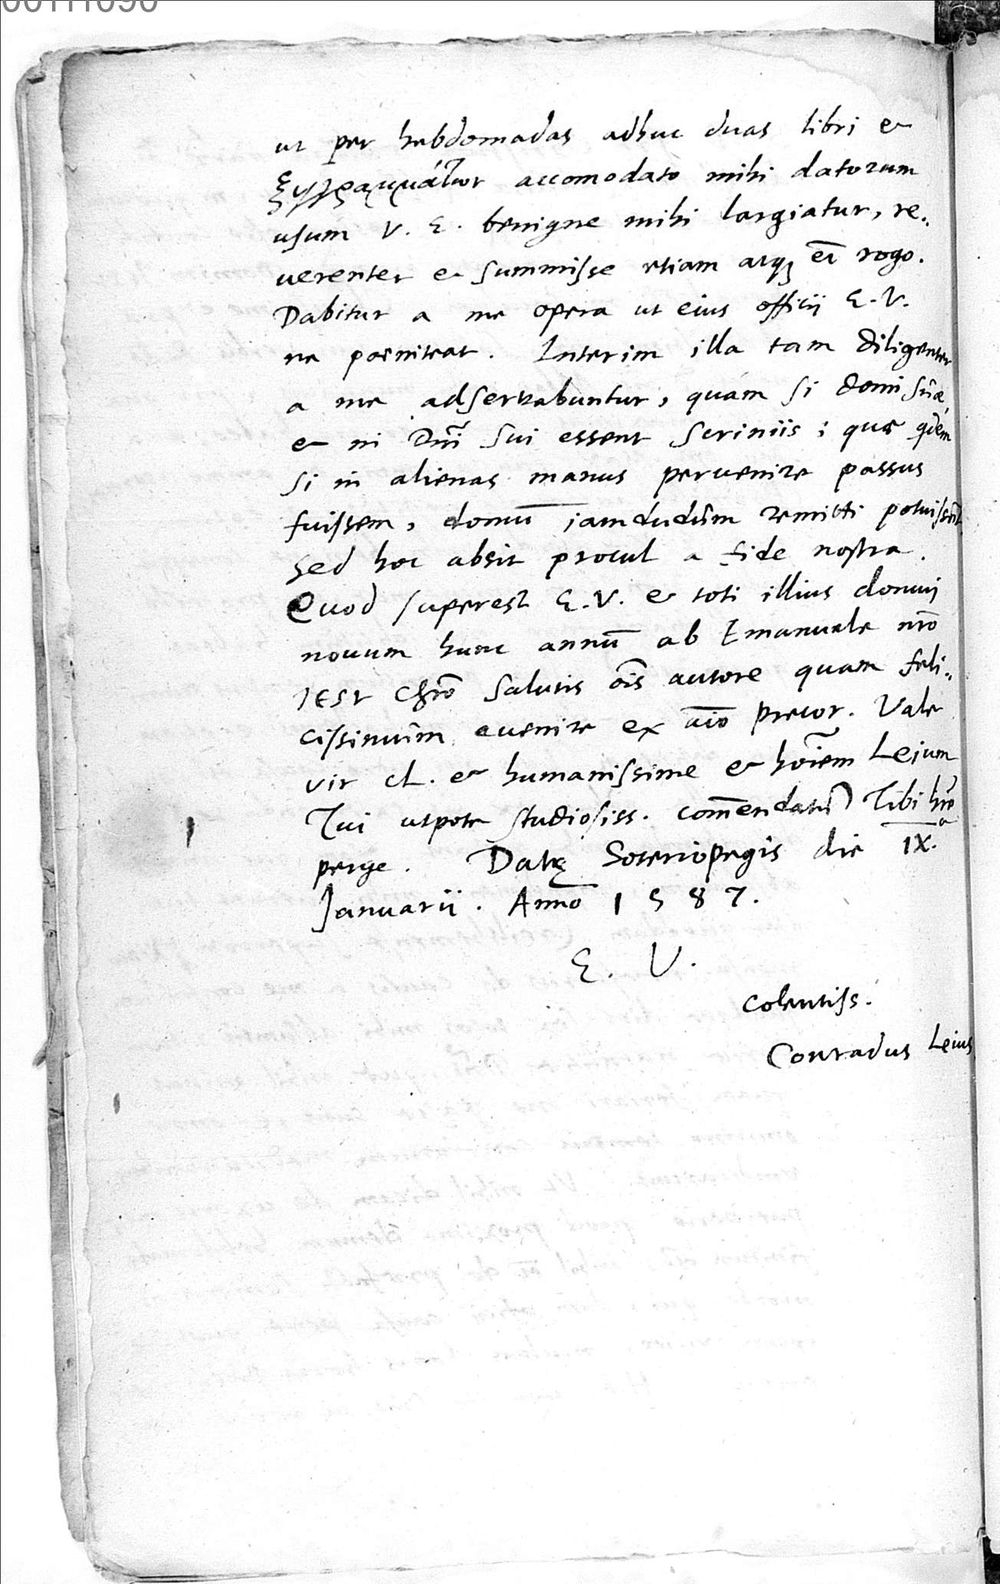 00111090
ut per hebdomadas adhuc duas libri et
ξυγγραμμάτων accomodato mihi datorum
usum V. E. benigne mihi largiatur, re„
uerenter et summisse etiam atq; eā rogo.
Dabitur a me opera ut eius officij E. V.
ne poeniteat. Interim illa tam diligenter
a me adseruabuntur, quam si domi suae
et in Dnī sui essent scriniis; quae quem
si in alienas manus peruenire passus
fuissem, domū iamdudum remitti potuissent
Sed hoc absit procul a fide nostra.
Quod superest E. V. et toti illius domui
nouum hunc annū ab Emanuele nr̄o
IESV Chr̄o salutis ōis autore quam feli„
cissimum euenire ex aīo precor. Vale
vir cl. et humanissime et hōiem Leium
Tui utpote studiosiss. com̄endatū Tibi
perge. Datę Soteriopegis die IX.a
Januarii. Anno 1587.
E. V.
colentiss.
Conradus Leius